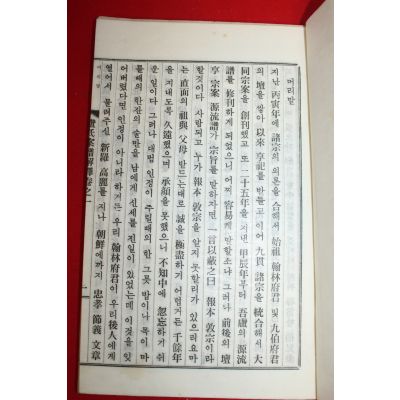 머리말
지난 丙寅年에 諸宗의 의론을 合해서 始祖 翰林府君 및 九伯府君
의 壇을 쌓아 以來 享祀를 받들고 이어 九貫 諸宗을 統合해서 大
同宗案을 創刊했고 또 二十五年을 지낸 甲辰年부터 吾庿의 源流
譜를 修刊하게 되었으니 어찌 容易케 말할소냐 그러나 前後의 壇
享 宗案 源流譜가 宗旨를 말하자면 一言以蔽之曰 報本敦宗이라
할것이다 사람되고 누가 報本敦宗을 알지 못할리가 있으리요마
는 直面의 祖與父母 받드는데로 誠을 極盡하기 어렵거든 千餘年
을 지내도록 久遠했으며 承須을 못했으니 不知中에 忽忘하기 쉬
운 일이다 그러나 대범 인정이 주릴때의 한 그릇 밥이나 목이 마
를때의 한잔의 술만을 남에게 신세를 진일이 있었는데 이것을 잊
어버렸다면 인정이 아니라 하거든 우리 翰林府君이 우리後人에게
열어서 물려주신 新羅 高麗를 지나 朝鮮에까지 忠孝 節義 文章